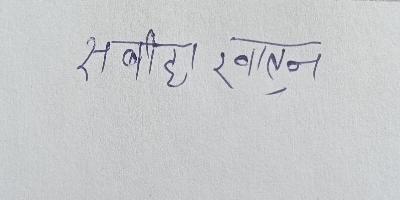 सबीहा खातुन